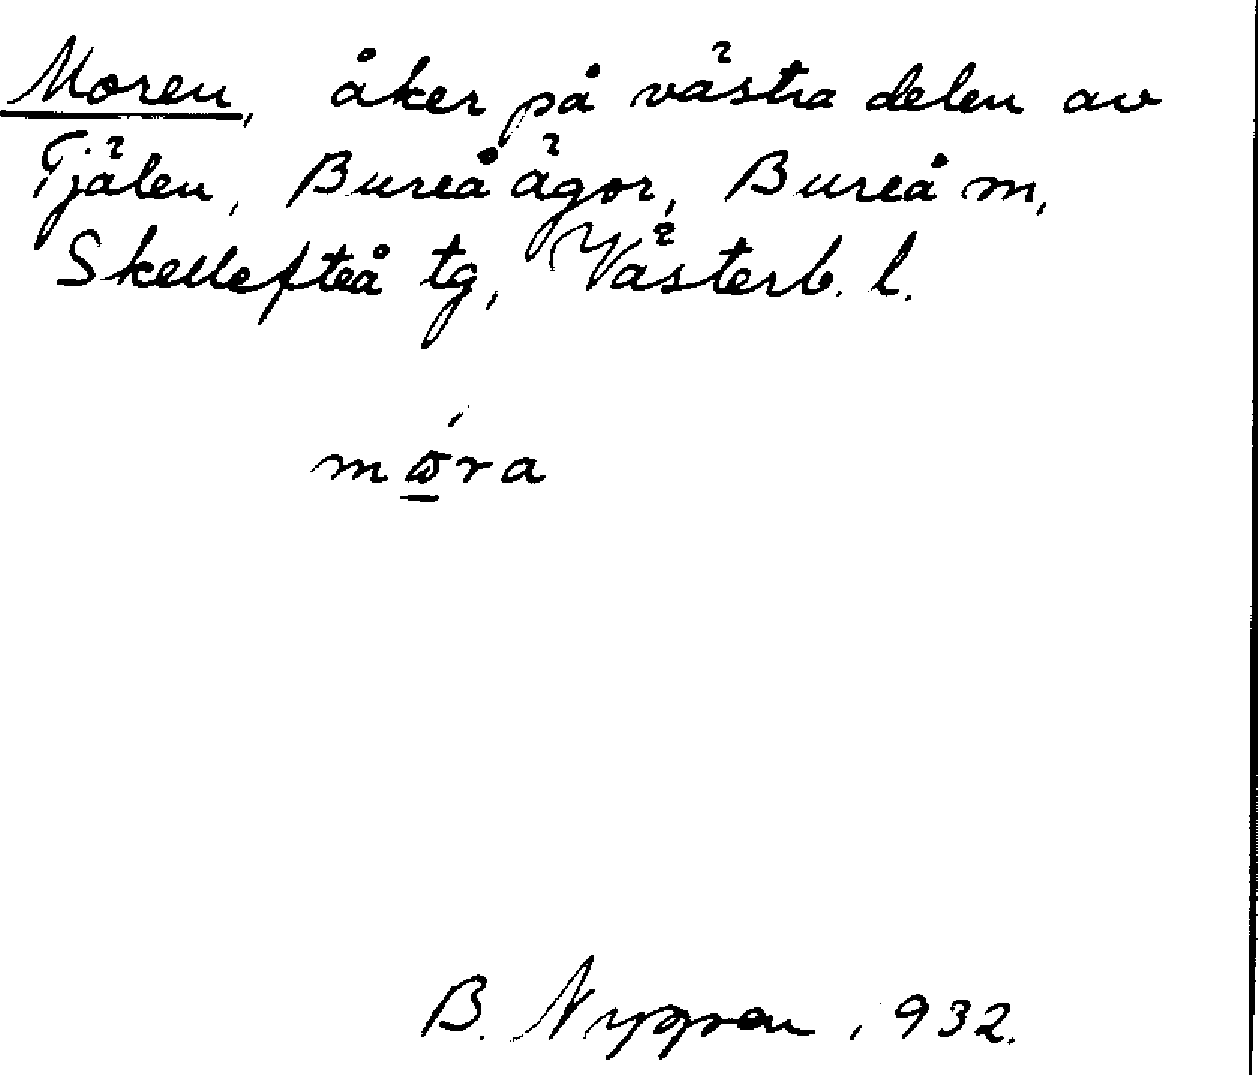 Moren, åker på västra delen av
Tjälen, Bureå ägor, Bureå m,
Skellefteå tg, Västerb. l.
B. Nygren, 932.